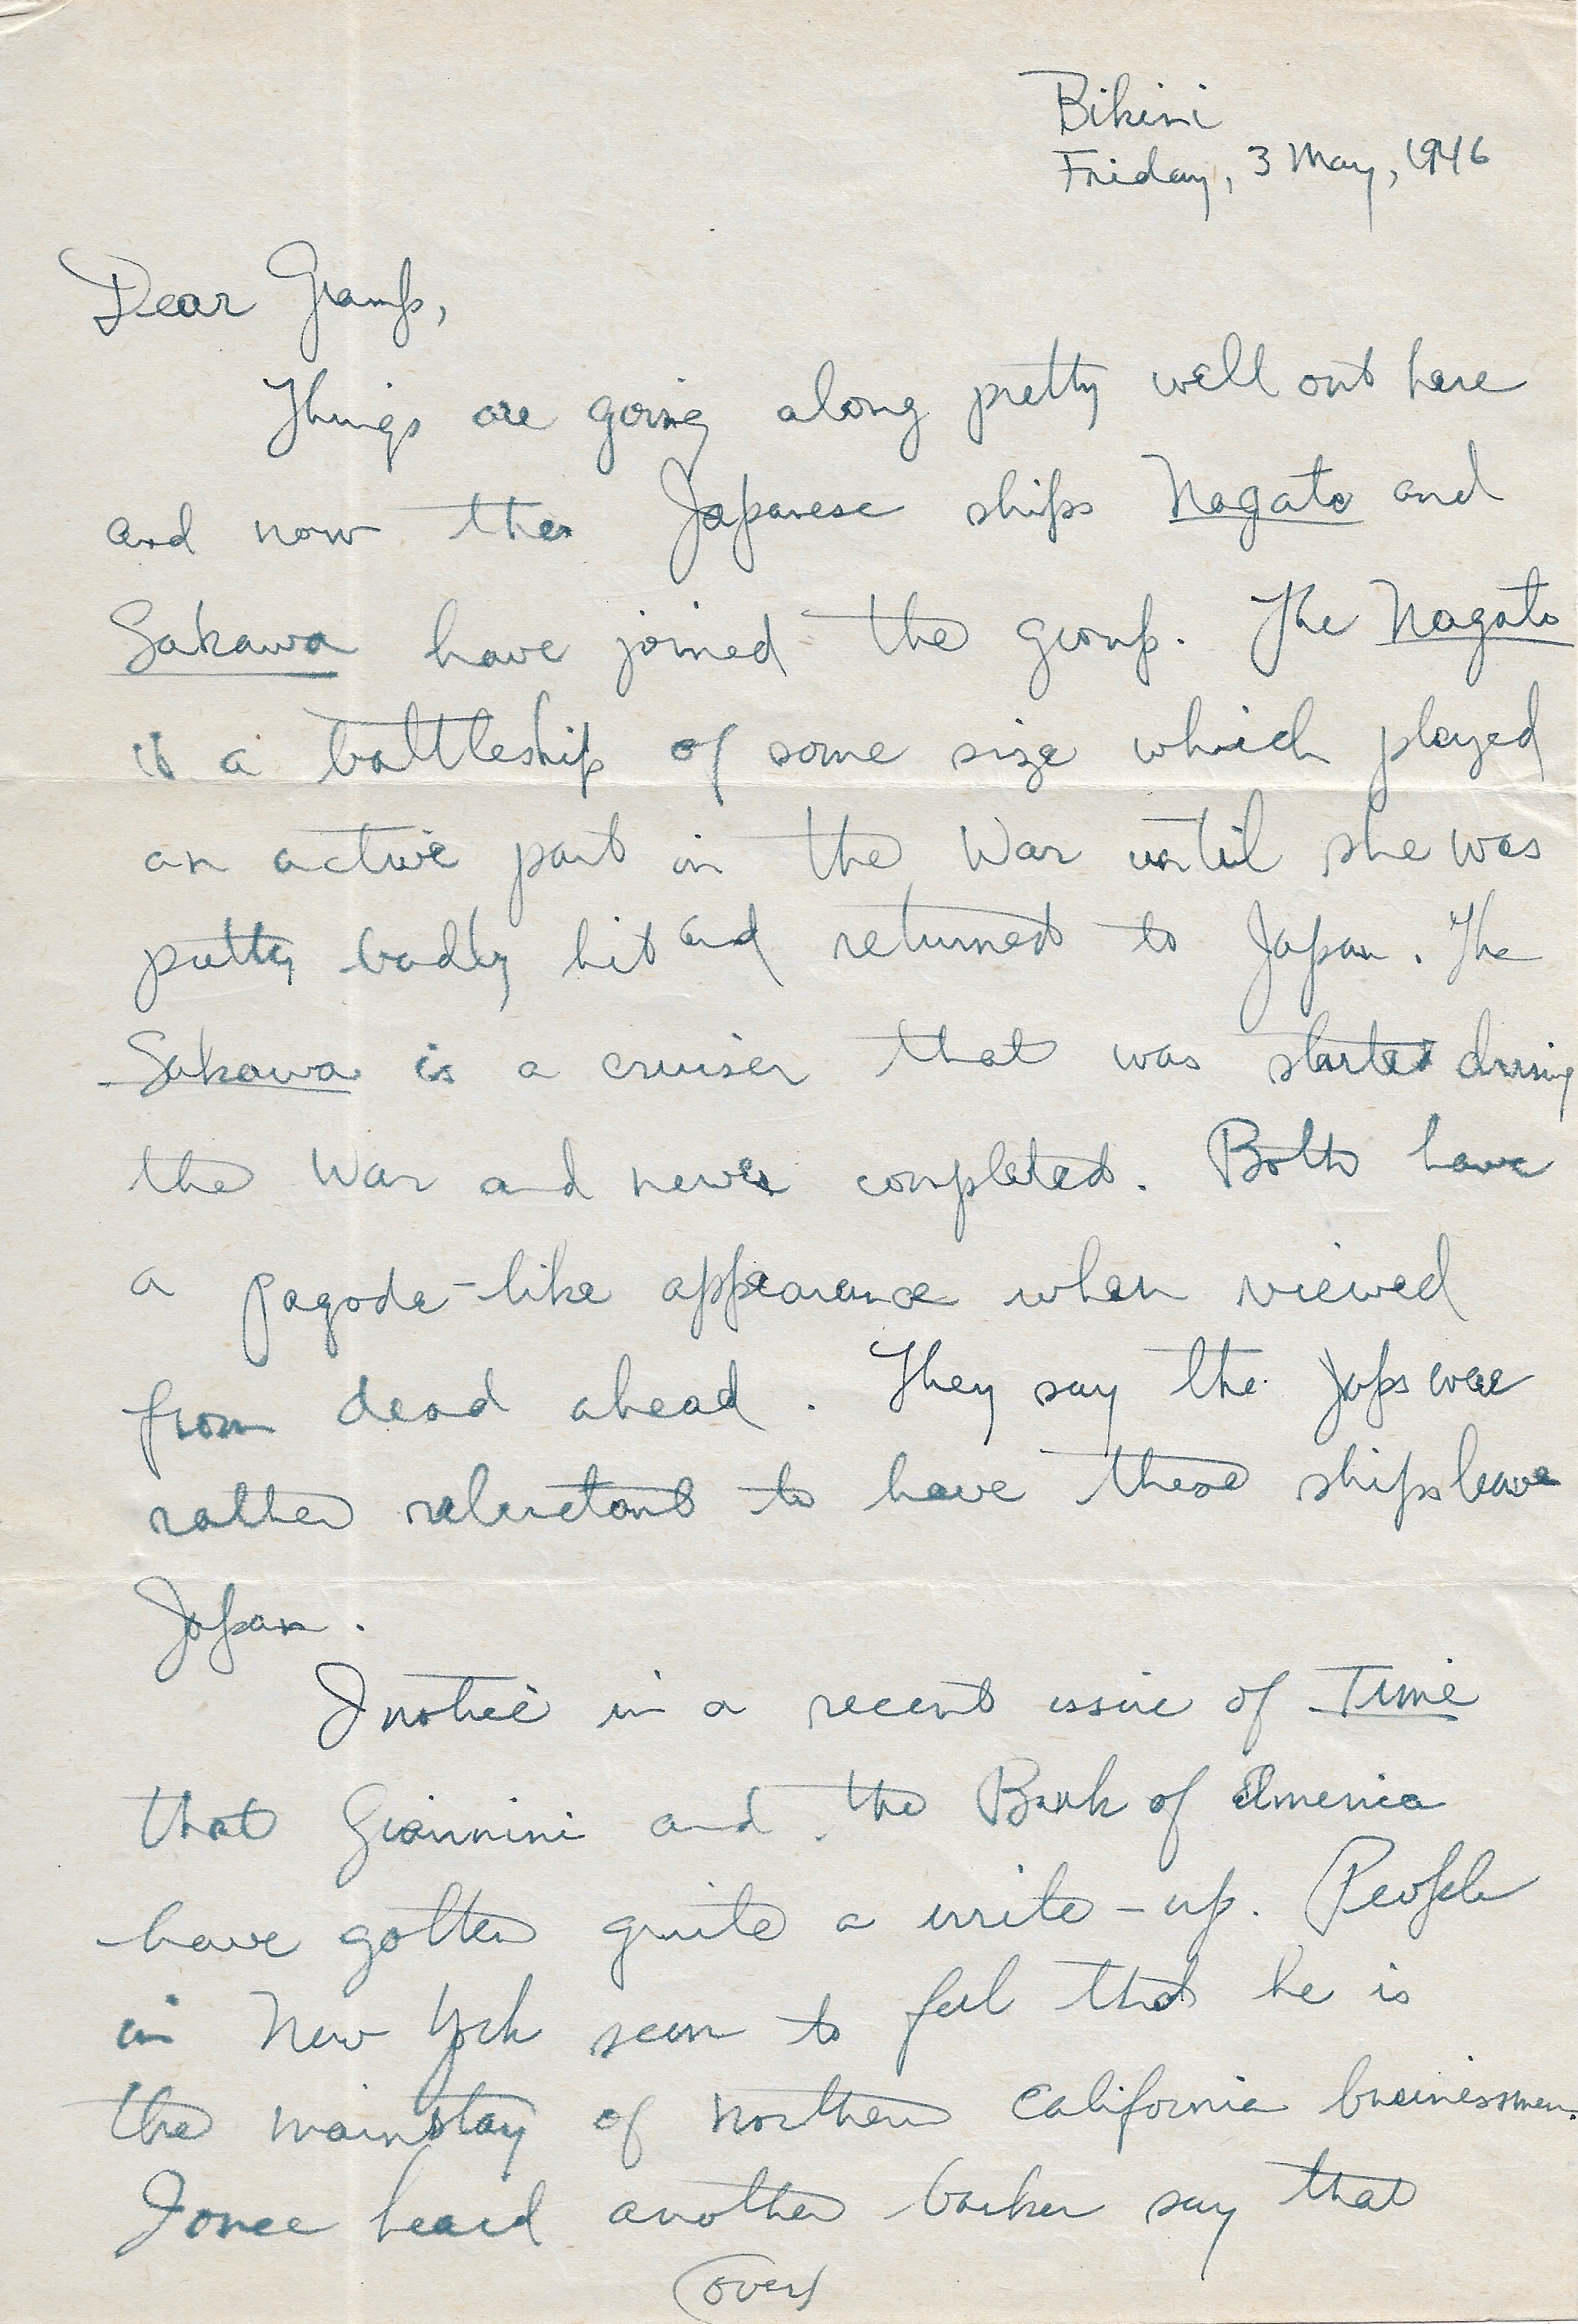 Bikini
Friday, 3 May, 1946
Dear Gramps,
Things are going along pretty well out here
and now the Japanese ships Nagato and
Sakawa have joined the group. The Nagato
is a battleship of some size which played
an active part in the War until she was
pretty badly hit and returned to Japan. The
Sakawa is a cruiser that was started during
the War and never completed. Both have
a pagoda-like appearance when viewed
from dead ahead. They say the Japs were
rather reluctant to have these ships leave
Japan.
I notice in a recent issue of Time
that Giannini and the Bank of America
have gotten quite a write-up. People
in New York seem to feel that he is
the mainstay of northern California businessmen.
I once heard another banker say that
(over)